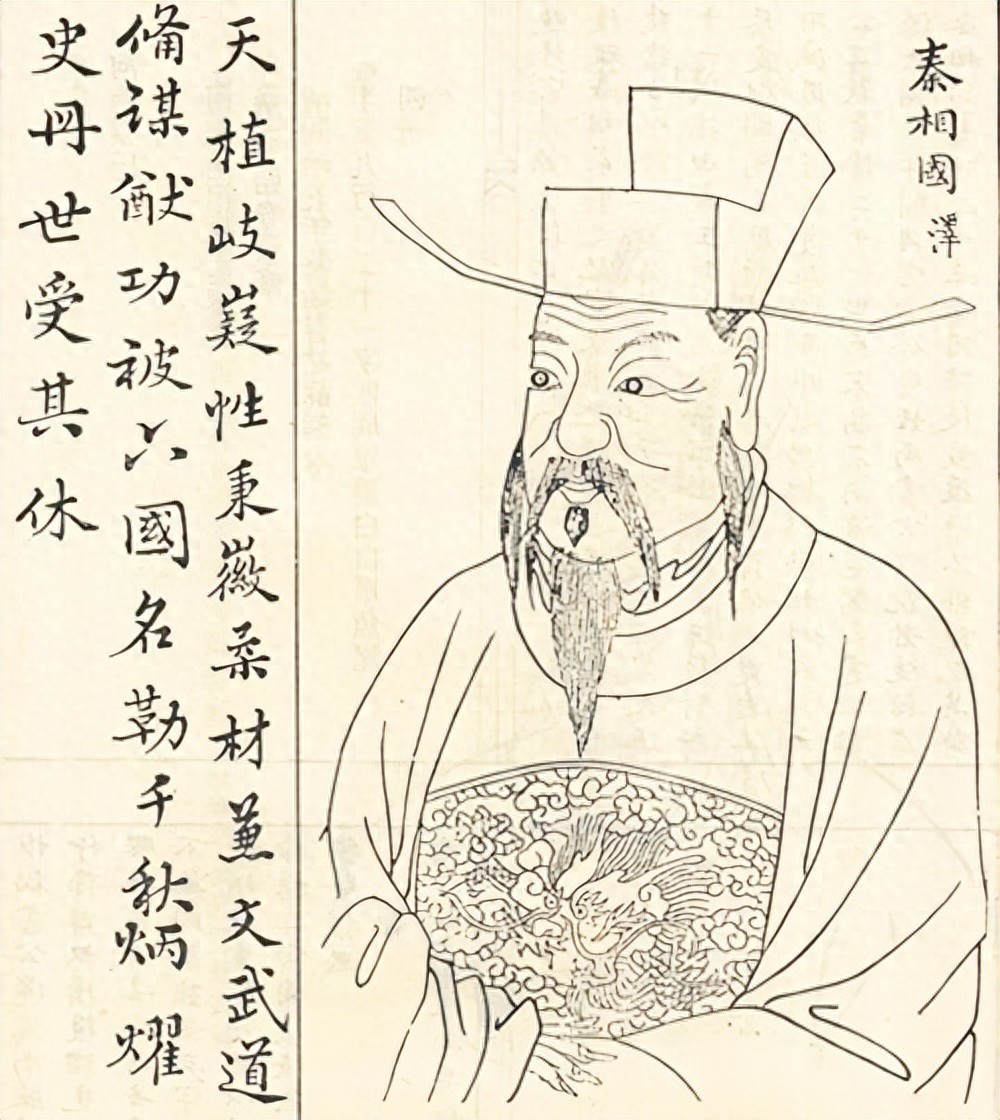 秦相國 澤
天植岐嶷性秉徽柔材兼文武道
備謀猷功被六國名勒千秋炳燿
史册世受其休